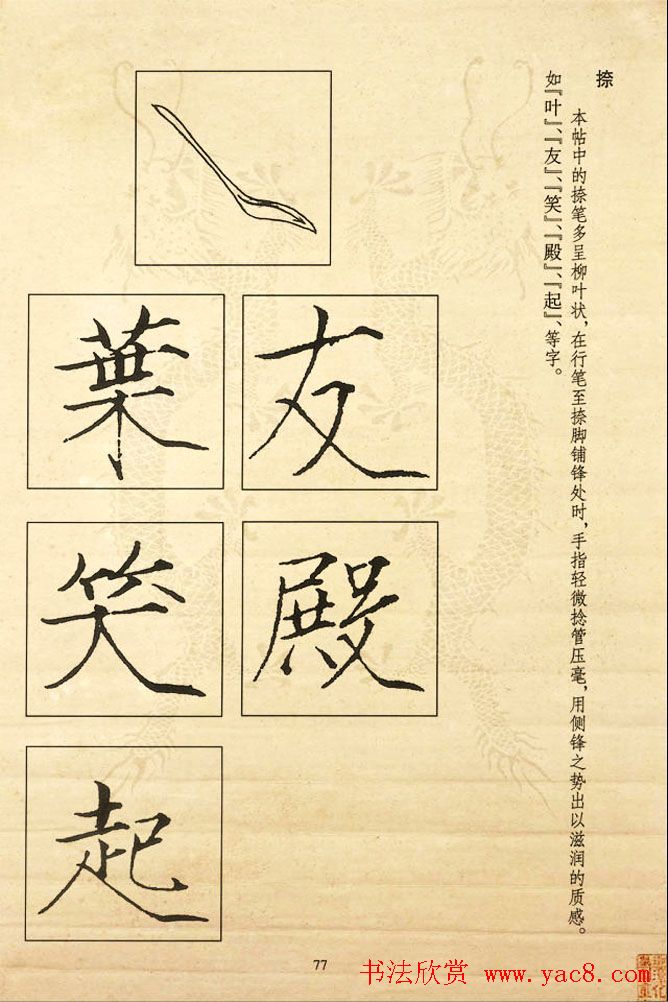 捺
本帖中的捺笔多呈柳叶状，在行笔至捺脚铺锋处时，手指轻微捻管压毫，用侧锋之势出以滋润的质感。
如『叶』、『友』、『笑』、『殿』、『起』、等字。
友
葉
殿
笑
起
77
书法欣赏 www.yac8.com